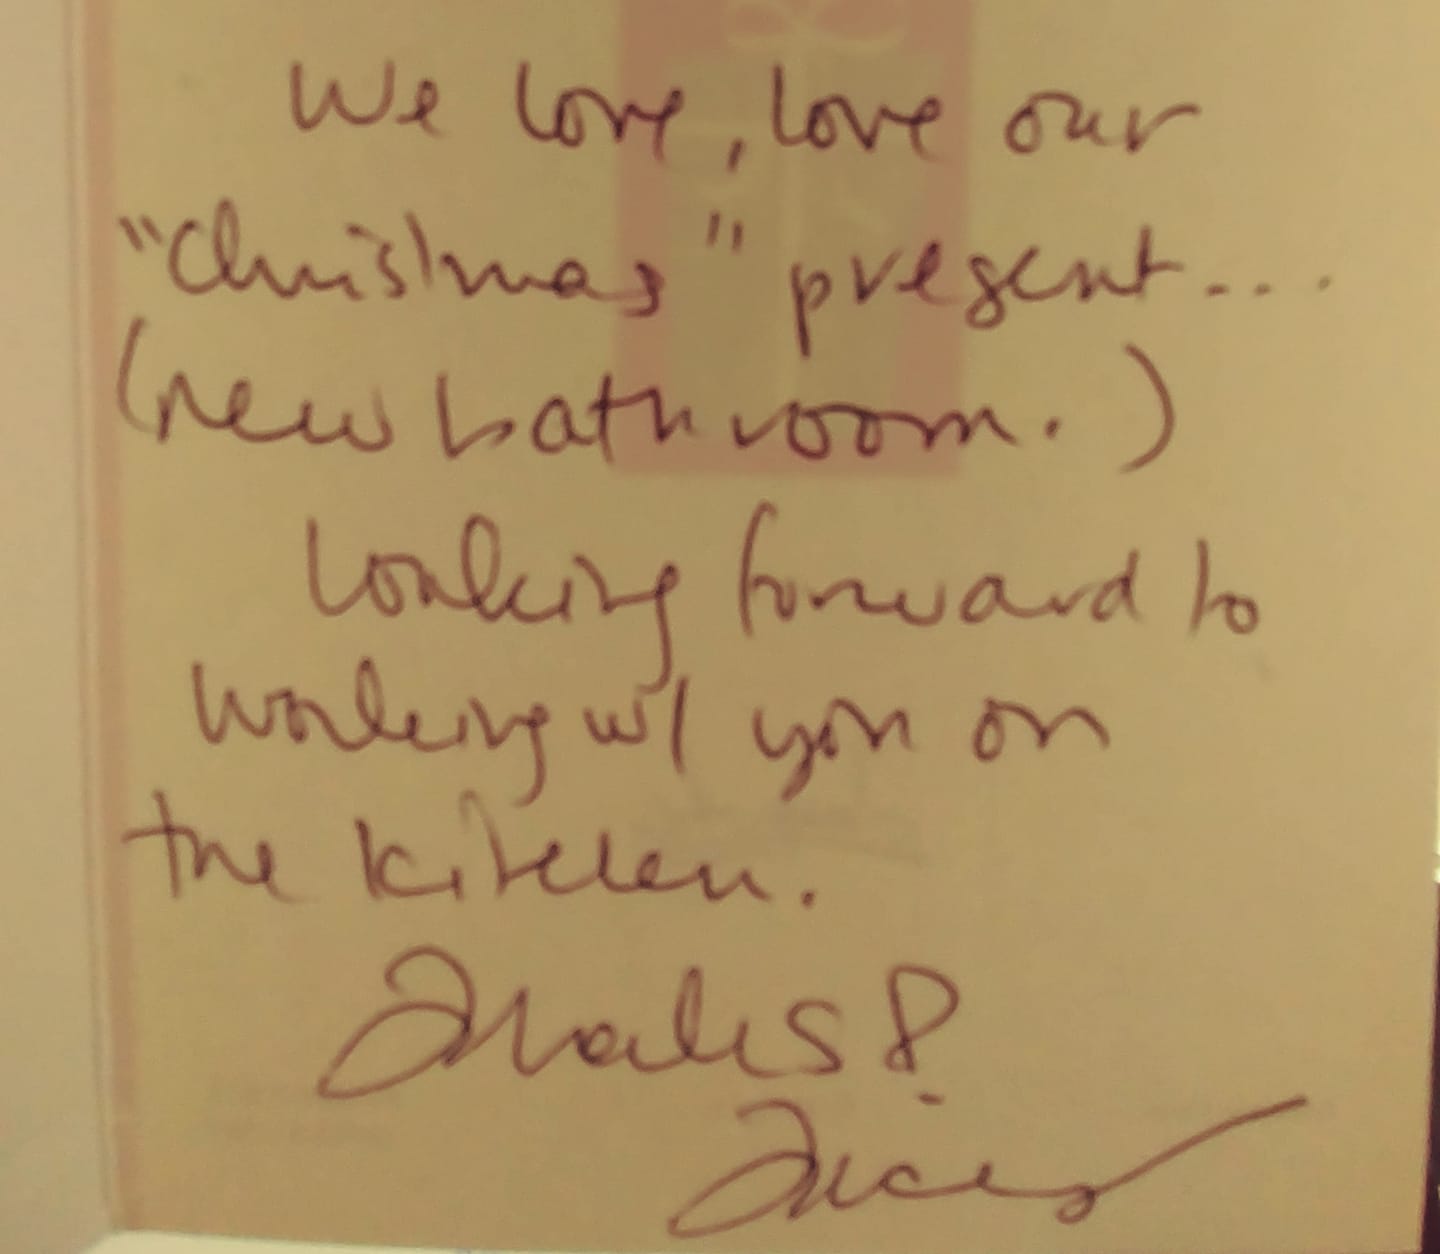 We love, love our
"Christmas" present....
(new bathroom.)
Looking forward to
working w/ you on
the kitchen.
Thanks!